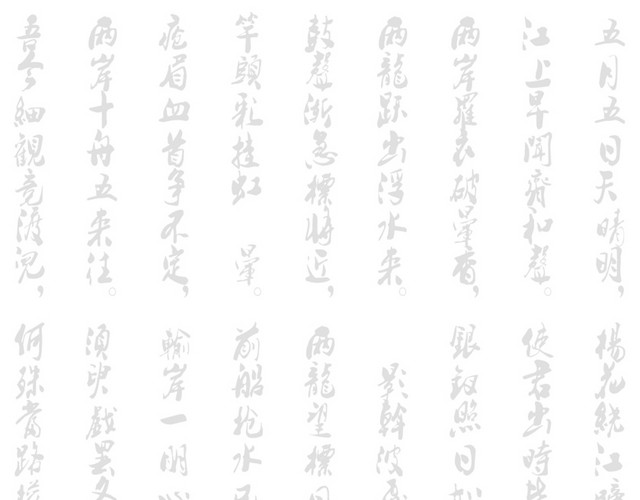 五月五日天晴明，
楊花繞江
江上早聞齊和聲。
使君出時
兩岸羅衣破暈香，
銀釵照日
兩龍跃出浮水来。
影幹波
鼓聲漸急標將近，
兩龍望標
竿頭彩挂虹 暈。
前船抢水
瘡眉血首争不定，
輸岸一朋
兩岸十舟五来往。
須臾戲罷
吾今細觀竞渡兒，
何殊當路